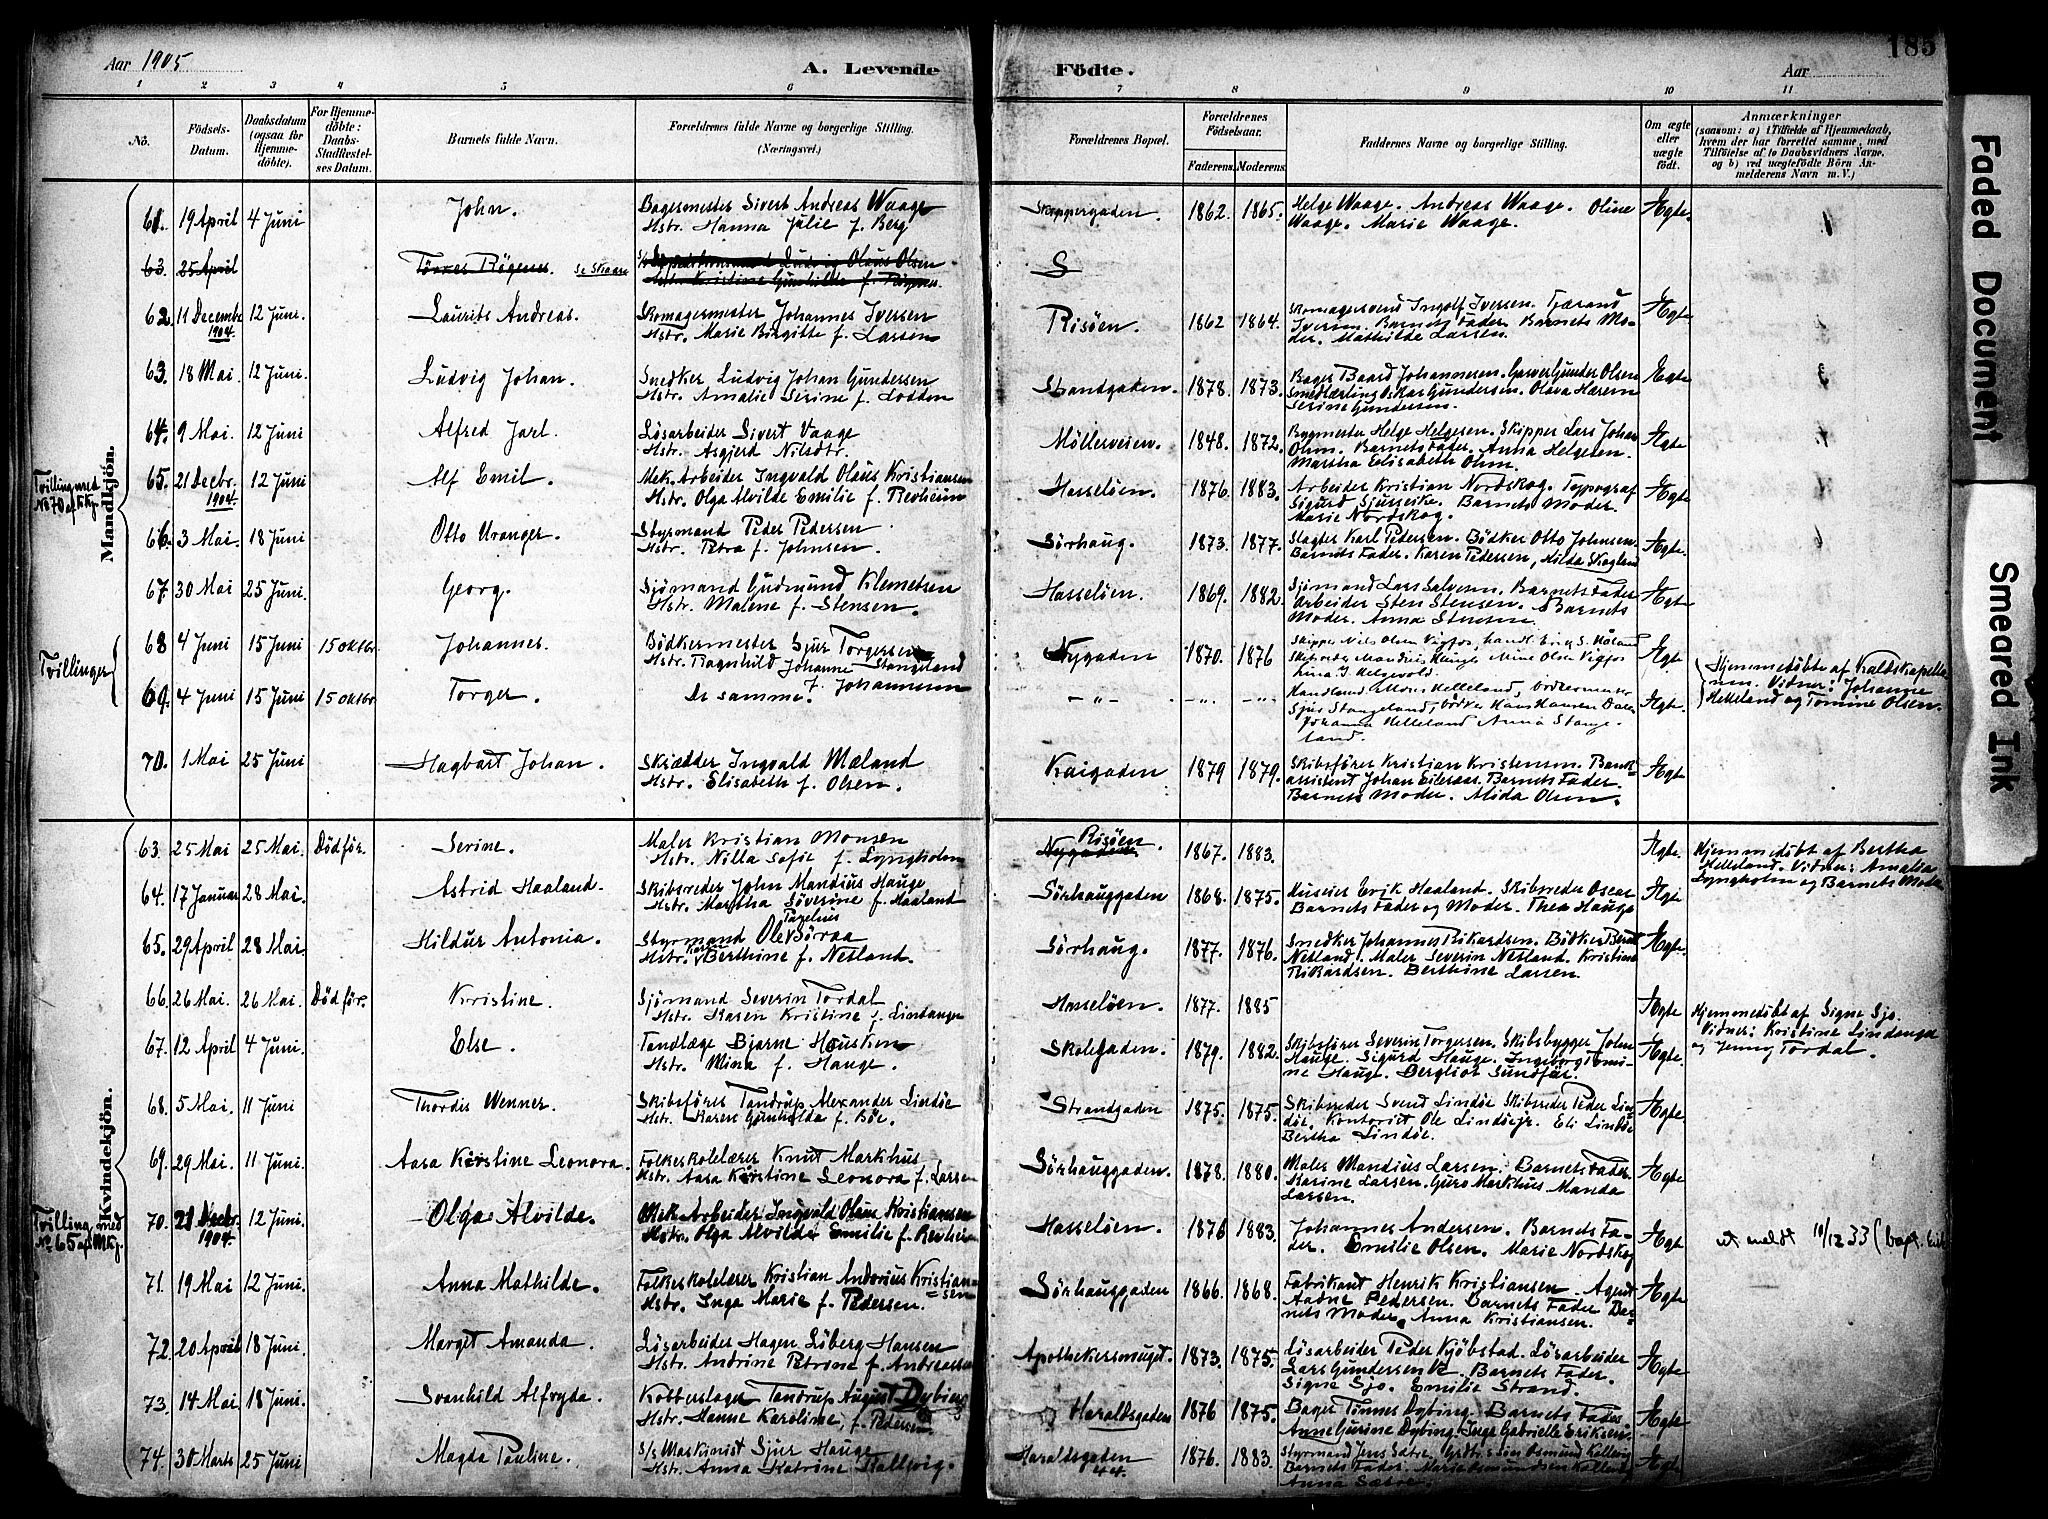 Aar 1905
A. Levende
Födte.
Aar
185
1 2 3 4 5 6 7 8 9 10 11
No.
Födsels-Datum.
Daabsdatum (ogsaa for Hjemmedöbte).
For Hjemmedöbte: Daabs-Stadfæstelses Datum.
Barnets fulde Navn.
Forældrenes fulde Navne og borgerlige Stilling.
(Næringsvei.)
Forældrenes Bopæl.
Forældrenes Födselsaar.
Faderens. Moderens.
Faddernes Navne og borgerlige Stilling.
Om ægte eller uægte födt.
Anmærkninger
(saasom: a) i Tilfælde af Hjemmedaab, hvem der har forrettet samme, med Tilföielse af to Daabsvidners Navne, og b) ved uægtefödte Börn Anmelderens Navn m. V.)
Mandkjön.
61. 19 April 4 Juni John. Bagermester Sivert Andreas Waage Skippergaden. 1862. 1865. Helge Waage. Andreas Waage. Oline Ægte.
Hstr. Hanna Julie f. Berg. Waage. Marie Waage.
63. 25 April Se Skaare
S
62. 11 Decembr 1904. 12 Juni. Laurits Andreas. Skomagermester Johannes Iversen Risöen. 1862 1864. Skomagersvend Ingolf Iversen. Tjærand Ægte
Hstr. Marie Birgitte f. Larsen Iversen. Barnets Fader. Barnets Moder. Mathilde Larsen.
63. 18 Mai. 12 Juni. Ludvig Johan. Snedker Ludvig Johan Gundersen Strandgaden. 1878. 1873. Bager Baard Johannesen. Garver Gunder Olsen Ægte
Hstr. Amalie Serine f. Lodden Smedlærling Oskar Gundersen. Olava Hæren
Serine Gundersen.
64. 9 Mai. 12 Juni Alfred Jarl. Lösarbeider Sivert Vaage Möllerveien. 1848. 1872. Bygmester Helge Helgesen. Skipper Lars Johan Ægte
Hstr. Asgjerd Nilsdtr. Olsen. Barnets Fader. Anna Helgesen.
Martha Elisabeth Olsen.
Tvilling med No 70 af Kvkj.
65. 21 Decbr. 1904. 12 Juni Alf Emil. Mek. Arbeider Ingvald Olaus Kristiansen Hasselöen. 1876. 1883. Arbeider Kristian Nordskog. Typograf Ægte
Hstr. Olga Alvilde Emilie f. Revheim Sigurd Sjurseike. Barnets Moder.
Marie Nordskog.
66. 3 Mai. 18 Juni Otto Uranger. Styrmand Peder Pedersen Sörhaug. 1873. 1877. Slagter Karl Pedersen. Bödker Otto Johnsen. Ægte.
Hstr. Petra f. Johnsen. Barnets Fader. Karen Pedersen, Hilda Skogland
67. 30 Mai 25 Juni. Georg. Sjömand Gudmund Klemetsen Hasselöen. 1869. 1882. Sjömand Lars Salvesen. Barnets Fader Ægte
Hstr. Malene f. Stensen. Arbeider Sten Stensen. Barnets
Moder. Anna Stensen.
Tvillinger
68 4 Juni 15 Juni 15 oktbr. Johannes. Bödkermester Sjur Torgersen Nygaden 1870. 1876 Ægte
Hstr. Ragnhild Johanne Stangeland
f. Johannesen
69. 4 Juni 15 Juni 15 oktbr. Torger. De samme. -"- -"- -"- Ægte.
Hjemmedöbte af Kaldskapellanen. Vidner: Johanne
Helleland og Tomine Olsen.
70. 1 Mai 25 Juni Hagbart Johan. Skrædder Ingvald Mæland Kaigaden 1879 1879. Skibsförer Kristian Kristensen. Bank- Ægte
Hstr. Elisabeth f. Olsen. assistent Johan Eileraas. Barnets Fader.
Barnets Moder. Alida Olsen.
Kvindekjön.
63. 25 Mai 25 Mai. Död för. Serine. Maler Kristian Monsen Risöen 1867. 1883. Ægte.
Hstr. Nilla Sofie f. Lyngholm Nygaden
Hjemmedöbt af Bertha
Helleland. Vidner: Amalia
Lyngholm og Barnets Moder
64. 17 Januar 28 Mai. Astrid Haaland. Skibsreder John Mandius Hauge Sörhauggaden 1868. 1875. Huseier Erik Haaland. Skibsreder Oscar Ægte
Hstr. Martha Severine f. Haaland Barnets Fader og Moder. Thea Hauge
65. 29 April 28 Mai. Hildur Antonia. Styrmand Ole Tagelius Sörraa Sörhaug. 1877. 1876. Snedker Johannes Rikardsen. Bödker Berdt Ægte.
Hstr. Berthine f. Netland. Netland. Maler Severin Netland. Kristine
Rikardsen. Berthine Larsen.
66. 26 Mai. 26 Mai. Död för. Kristine. Sjömand Severin Tordal Hasselöen. 1877. 1885 Ægte
Hstr. Karen Kristine f. Lindanger
Hjemmedöbt af Signe Sjo.
Vidner: Kristine Lindanger
og Jenny Tordal.
67. 12 April 4 Juni. Else. Tandlæge Bjarne Hausken Skolegaden. 1879. 1882. Skibsförer Severin Torgersen. Skibsbygger John Ægte.
Hstr. Mina f. Hauge. Hauge. Sigurd Hauge. Ingeborg Tomine Hauge. Bergliot Sundför.
68. 5 Mai. 11 Juni Thordis Wenner. Skibsförer Tandrup Alexander Lindöe Strandgaden 1875. 1875. Skibsreder Svend Lindöe Skibsreder Peder Lindöe. Kontorist Ole Lindöe jr. Eli Lindöe Ægte.
Hstr. Karen Gunhilda f. Böe. Bertha Lindöe.
69. 29 Mai. 11 Juni. Aasa Kirstine Leonora. Folkeskolelærer Knut Markhus Sörhauggaden. 1878. 1880. Maler Mandius Larsen. Barnets Fader. Ægte
Hstr. Aasa Kirstine Leonora f. Larsen Karine Larsen. Guro Markhus Manda
Larsen.
Tvilling med No 65 af Mkj.
70. 21 Decbr. 1904. 12 Juni. Olga Alvilde. Mek Arbeider Ingvald Olaus Kristiansen Hasselöen. 1876 1883. Johannes Andersen. Barnets Fader. Emilie Olsen. Marie Nordskog Ægte
Hstr. Olga Alvilde Emilie f. Revheim
ut meldt 19/12 33 (bapt.
71. 19 Mai 12 Juni. Anna Mathilde. Folkeskolelærer Kristian Andorius Kristiansen Sörhauggaden 1866. 1868. Fabrikant Henrik Kristiansen. Agent Ægte
Hstr. Inga Marie f. Pedersen. Aadne Pedersen. Barnets Fader Barnets Moder. Anna Kristiansen.
72. 20 April 18 Juni. Marget Amanda. Lösarbeider Hagen Löberg Hansen Apothekersmuget. 1873. 1875. Lösarbeider Peder Kjöbstad. Lösarbeider Ægte
Hstr. Andrine Petrine f. Andreassen Lars Gundersen. Barnets Fader.
Signe Sjo. Emilie Strand.
73. 14 Mai. 18 Juni. Svanhild Alfryda. Kobberslager Tandrup August Dybing Haraldsgaden 1876 1875. Bager Tönnes Dybing. Barnets Fader. Ægte
Hstr. Hanne Karoline f. Pedersen Anne Gurine Dybing. Inge Gabrielle Eriksen.
74. 30 Marts 25 Juni Magda Pauline. S/S Maskinist Sjur Hauge Haraldsgaden 44. 1876. 1883. Ægte
Hstr. Anna Katrine Kallevig. Barnets Fader.
Faded Document
Smeared Ink